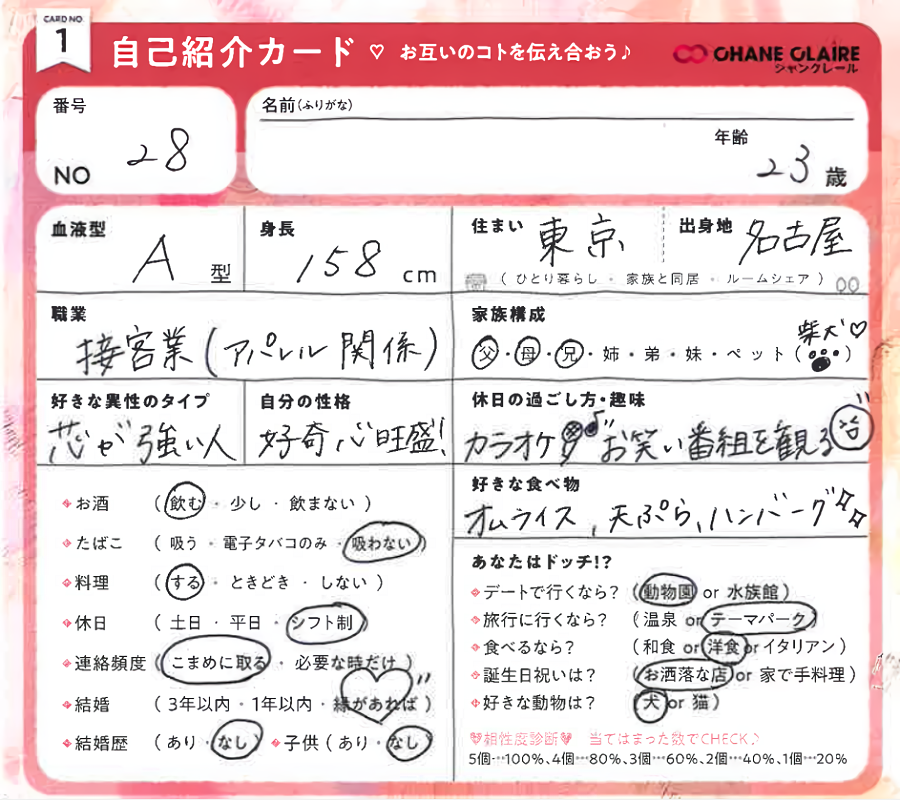 CARD NO
1
自己紹介カード ♡ お互いのコトを伝え合おう♪
CHANE CLAIRE
シャングレール
番号
NO 28
名前(ふりがな)
年齢
23 歳
血液型
A 型
身長
158 cm
住まい 東京
出身地 名古屋
( ひとり暮らし ・ 家族と同居 ・ ルームシェア )
職業
接客業(アパレル関係)
家族構成
柴犬♡
父・母・兄・姉・弟・妹・ペット( )
好きな異性のタイプ
芯が強い人
自分の性格
好奇心旺盛!
休日の過ごし方・趣味
カラオケ お笑い番組を観る
好きな食べ物
オムライス、天ぷら、ハンバーグ
お酒 ( 飲む ・ 少し ・ 飲まない )
たばこ ( 吸う ・ 電子タバコのみ ・ 吸わない )
料理 ( する ・ ときどき ・ しない )
休日 ( 土日 ・ 平日 ・ シフト制 )
連絡頻度 ( こまめに取る ・ 必要な時だけ )
結婚 ( 3年以内 ・ 1年以内 ・ 縁があれば )
結婚歴 ( あり ・ なし ) 子供 ( あり ・ なし )
あなたはドッチ!?
デートで行くなら? ( 動物園 or 水族館 )
旅行に行くなら? ( 温泉 or テーマパーク )
食べるなら? ( 和食 or 洋食 or イタリアン )
誕生日祝いは? ( お洒落な店 or 家で手料理 )
好きな動物は? ( 犬 or 猫 )
♥相性度診断♥ 当てはまった数でCHECK♪
5個…100%、4個…80%、3個…60%、2個…40%、1個…20%